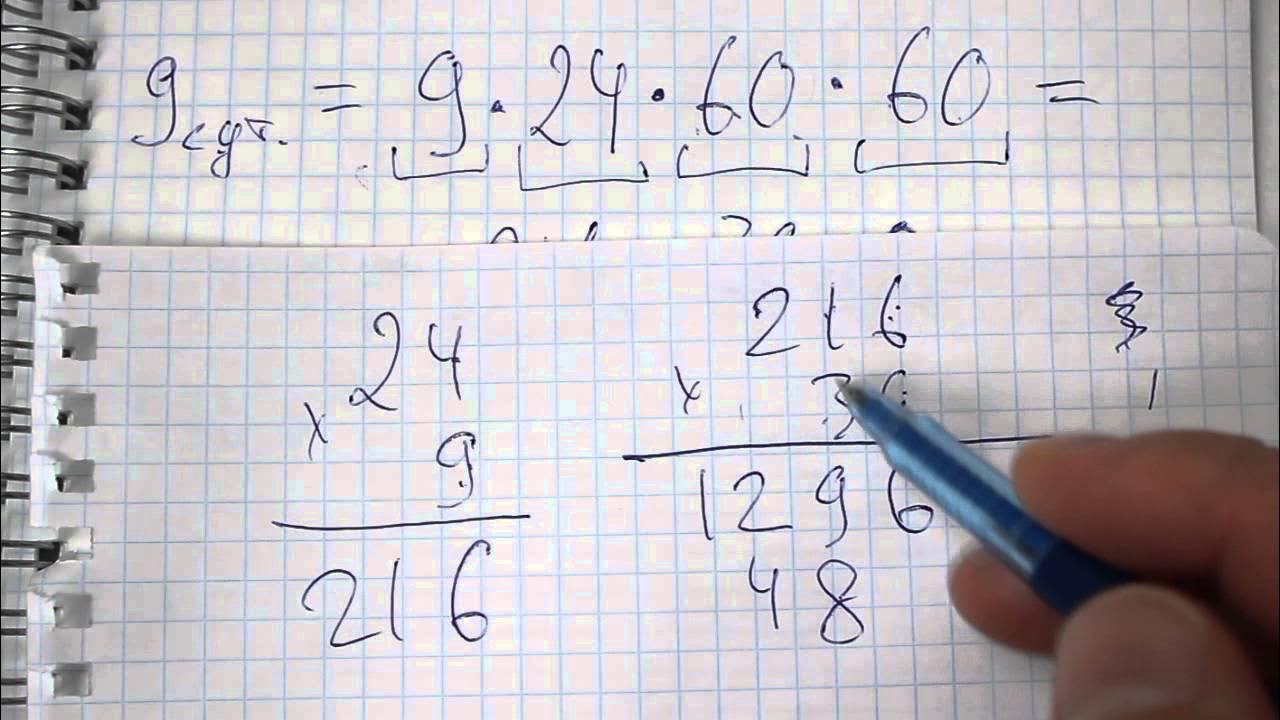 9 сут. = 9 · 24 · 60 · 60 =
24
× 9
216
216
× 36
1296
48
1